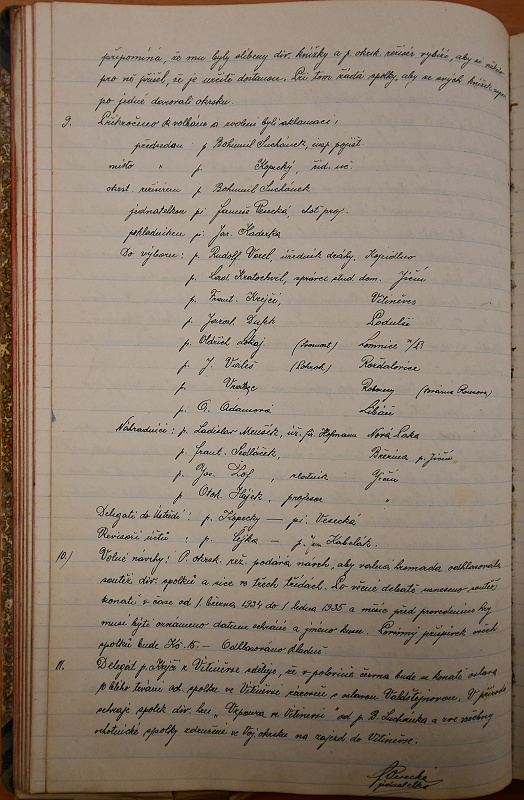 připomíná, že mu byly slíbeny div. knížky a p. okrsk. režisér vybízí, aby se
pro ně přišel, že je určitě dostanou. Při tom žádá spolky, aby se svých knížek
po jedné darovali okrsku.
9. Přikročeno k volbám a zvoleni byli aklamací:
předsedou p. Bohumil Suchánek, insp. pojišť
místo " p. Kopecký, říd. uč.
okrsk. režisérem p. Bohumil Suchánek
jednatelkou pí. Vesecká,
pokladníkem p. Jar. Kaderka
Do výboru: p. Rudolf Vorel, úředník dráhy, Kopidlno
p. Lad. Kratochvíl, správce stud. dom. Jičín
p. Frant. Krejčí, Vitiněves
p. Jarosl. Dufek
p. Oldřich Lokaj Lomnice n/P
p. J. Valeš Rožďalovice
p. Robousy
p. A. Adamová Libáň
Náhradníci: p. Ladislav Menšík, úř. fy. Hofmann Nová Paka
p. Frant. Sedláček, Březina p. Jičín
p. Jos. Zof, zlatník Jičín
p. Otok. Hájek, profesor "
Delegáti do Ústředí: p. Kopecký — pí. Vesecká
Revisoři účtů: p. Lejka — p. Kabelák.
10.) Volné návrhy: P. okrsk. rež. podává návrh, aby valná hromada odhlasovala
soutěž div. spolků a sice ve třech třídách. Po věcné debatě usneseno soutěž
konati v čase od 1. března 1934 do 1. ledna 1935 a měsíc před provedením hry
musí býti oznámeno datum sehrání a jméno kusu. Povinný příspěvek všech
spolků bude Kč 15.— Odhlasováno kladně
11. Delegát p. Krejčí z Vitiněvse sděluje, že v polovině června bude se konati oslava
trvání och. spolku ve Vitiněvsi zároveň s oslavou Valdštejnovou. V přírodě
sehraje spolek div. hru „Vzpoura ve Vitiněvsi" od p. B. Suchánka a zve všechny
ochotnické spolky sdružené ve Voj. okrsku na zájezd do Vitiněvse.
Vesecká
jednatelka